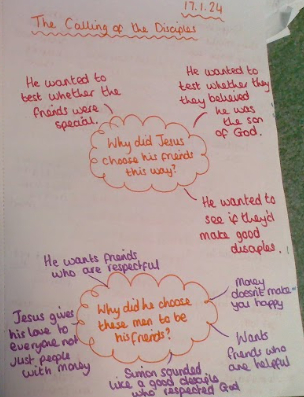 17.1.24
The Calling of the Disciples
He wanted to
test whether the
friends were
special.
He wanted to
test whether they
they believed
he was
the son
of God.
Why did Jesus
choose his friends
this way?
He wanted to
see if they'd
make good
disciples.
He wants friends
who are respectful
Why did he choose
these men to be
his friends?
Money
doesn't make
you happy
Jesus gives
his love to
everyone not
just people
with money
Wants
friends who
are helpful
Simion sounded
like a good disciple
who respected God